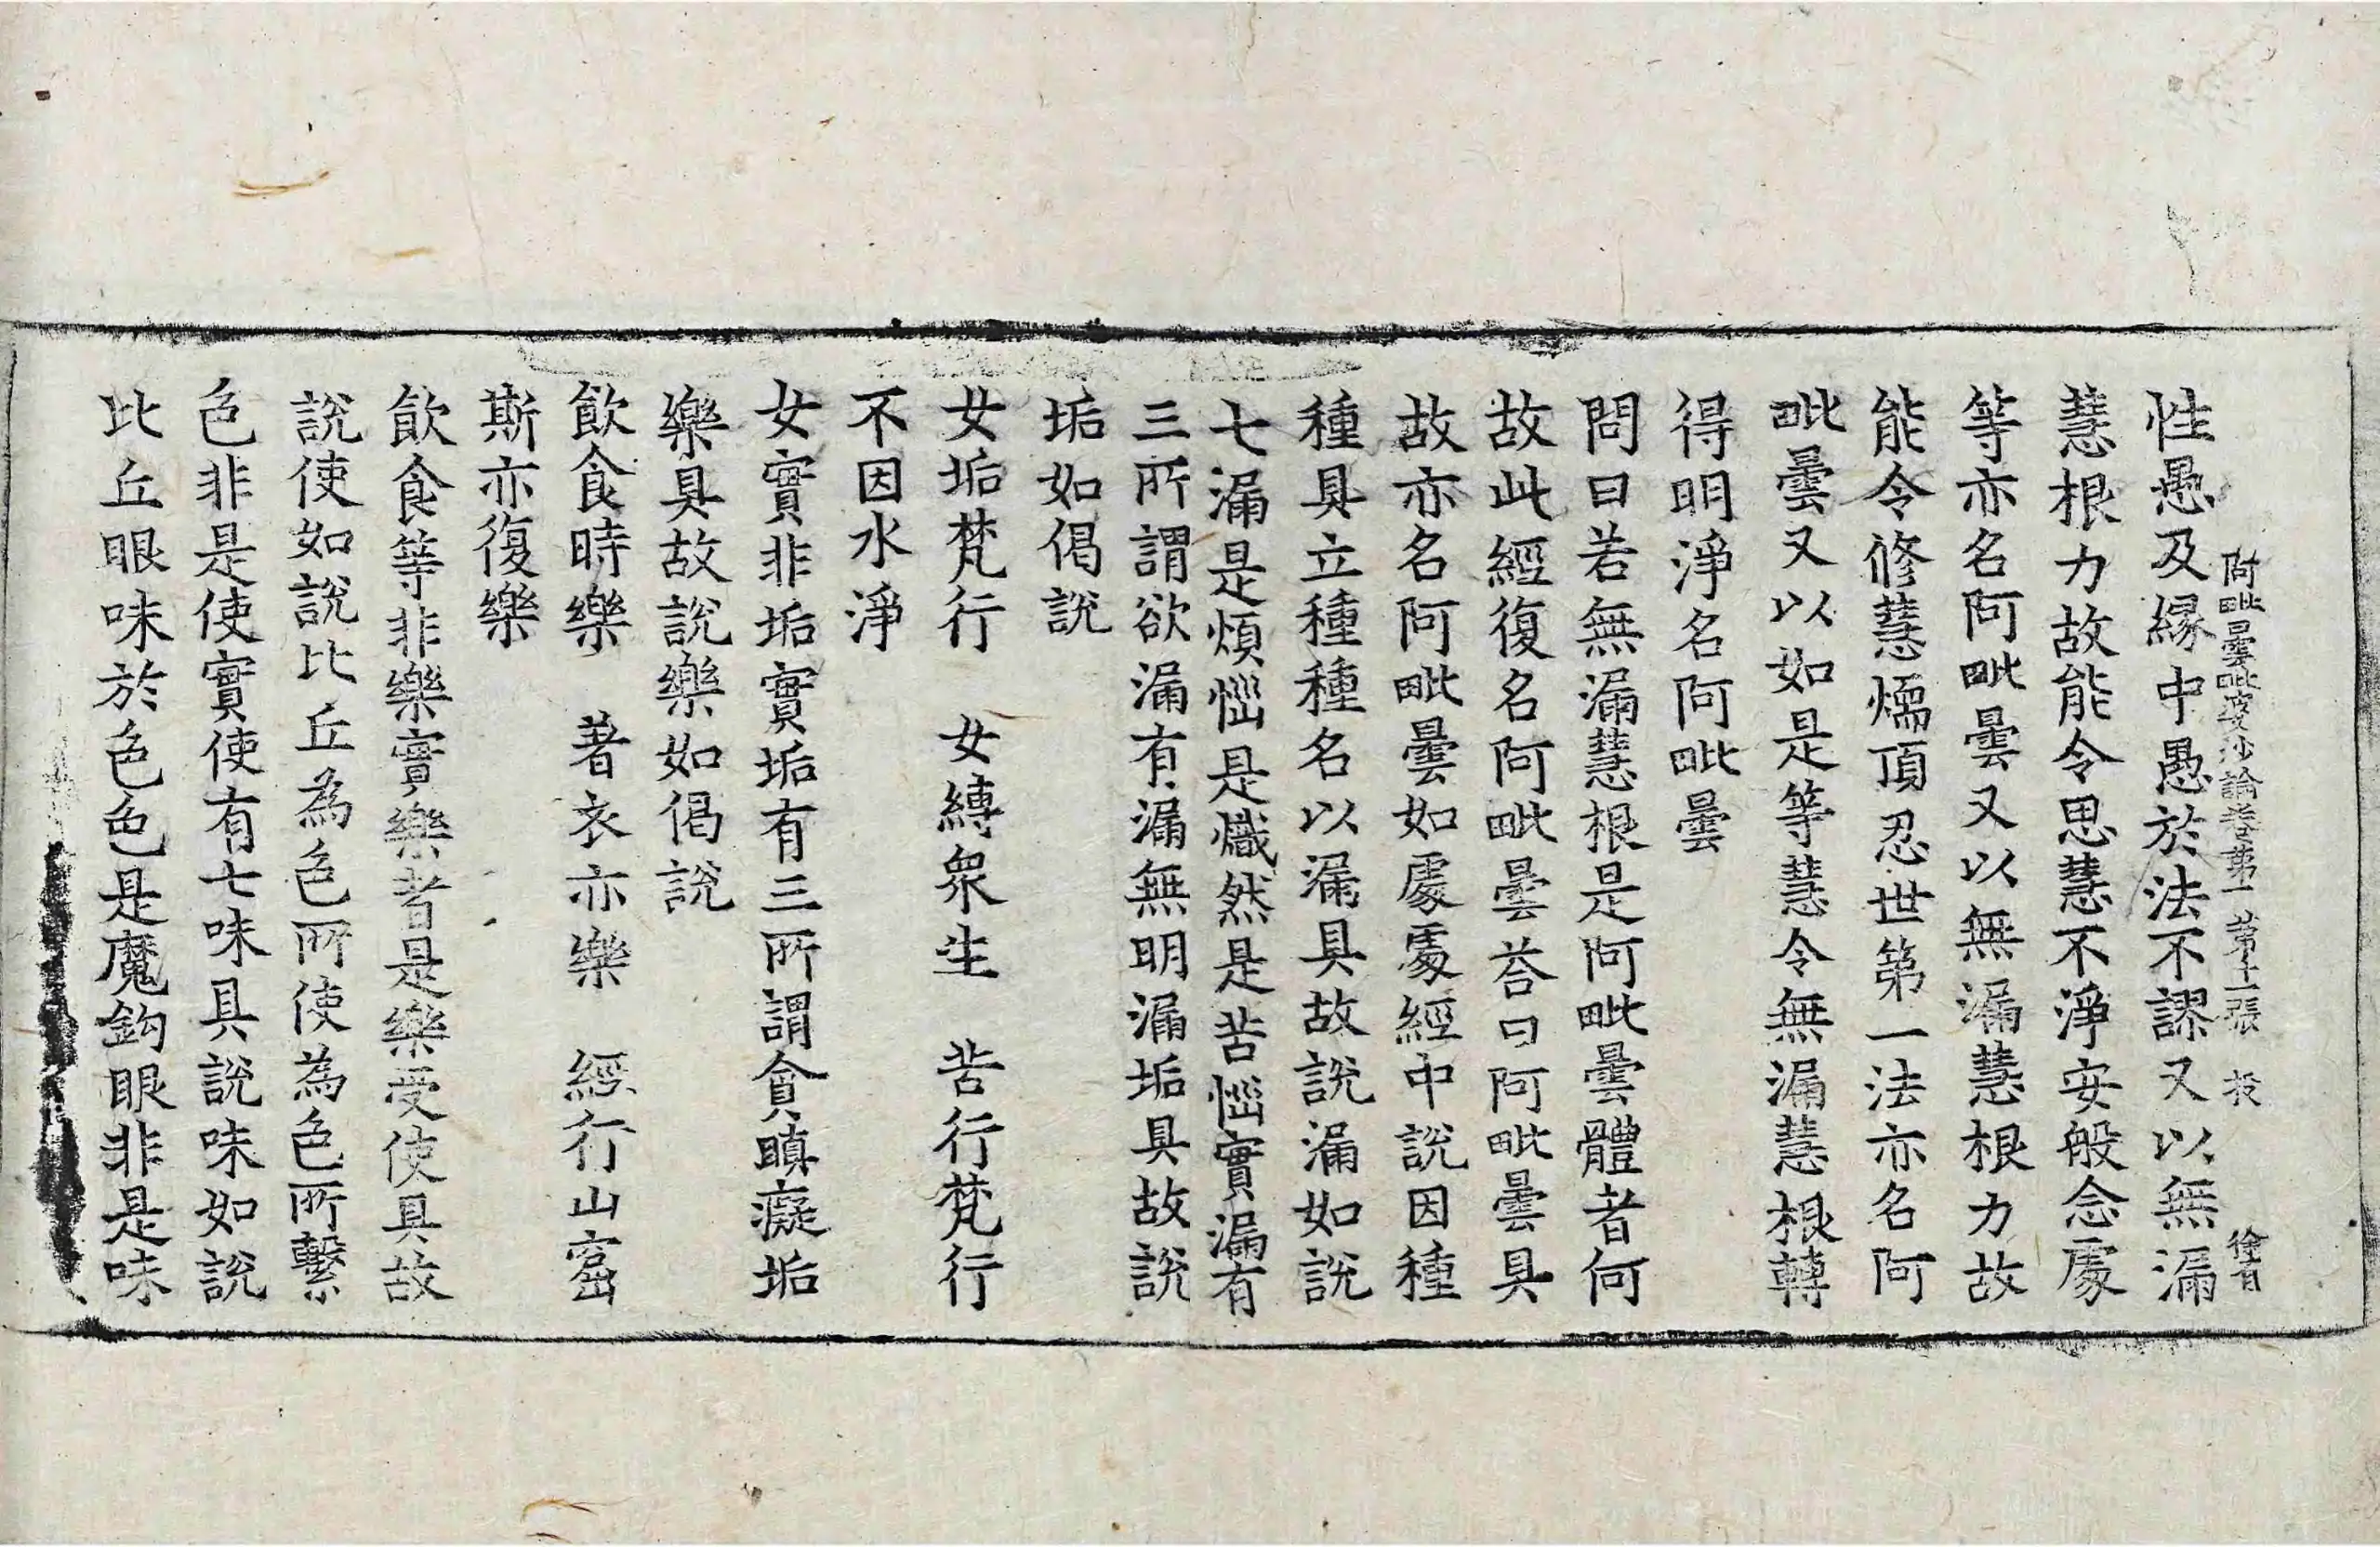 阿毗曇毗婆沙論卷第一　第十二張　枝　徐首
性愚及緣中愚於法不謬又以無漏
慧根力故能令思慧不淨安般念處
等亦名阿毗曇又以無漏慧根力故
能令修慧煗頂忍世第一法亦名阿
毗曇又以如是等慧令無漏慧根轉
得明淨名阿毗曇
問曰若無漏慧根是阿毗曇體者何
故此經復名阿毗曇荅曰阿毗曇具
故亦名阿毗曇如處處經中說因種
種具立種種名以漏具故說漏如說
七漏是煩惱是熾然是苦惱實漏有
三所謂欲漏有漏無明漏垢具故說
垢如偈說
女垢梵行　女縛衆生　苦行梵行
不因水淨
女實非垢實垢有三所謂貪瞋癡垢
樂具故說樂如偈說
飲食時樂　著衣亦樂　經行山窟
斯亦復樂
飲食等非樂實樂者是樂受使具故
說使如說比丘為色所使為色所繫
色非是使實使有七味具說味如說
比丘眼味於色色是魔鈎眼非是味